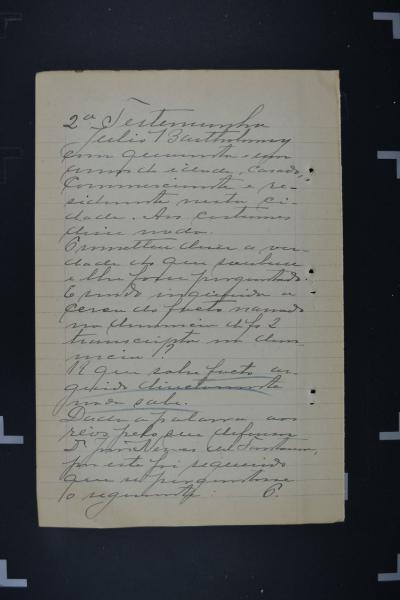 2ª Testemunha
Julio Bartholomeu
com quarenta e um
annos de idade, casado,
commerciante e re-
sidente nesta ci-
dade. Aos costumes
disse nada.
Prometteu dizer a ver-
dade do que soubesse
e lhe fosse perguntado.
E sendo inquirido a
cerca do facto narrado
na denuncia de fs 2
transcripta na denun-
ncia?
R que sobre facto ar-
guido directamente
nada sabe.
Dada a palavra aos
réos pelo seu defensor
Dr.
por este foi requerido
que se perguntasse
o seguinte: 6.